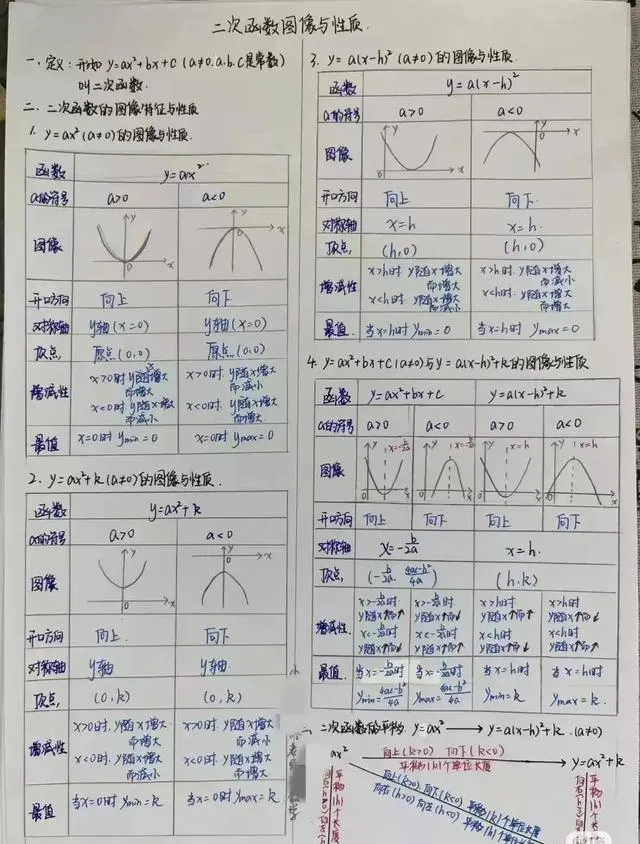 二次函数图像与性质.
一、定义:形如 y=ax²+bx+c (a≠0.a.b.c是常数)
叫二次函数.
二、二次函数的图像特征与性质
1. y=ax² (a≠0)的图像与性质.
函数 y=ax²
a的符号 a>0 a<0
图像
开口方向 向上 向下
对称轴 y轴(x=0) y轴(x=0)
顶点 原点(0,0) 原点(0,0)
增减性 x>0时 y随x增大而增大 x>0时 y随x增大而减小
x<0时 y随x增大而减小 x<0时 y随x增大而增大
最值 x=0时 ymin=0 x=0时 ymax=0
2. y=ax²+k (a≠0)的图像与性质.
函数 y=ax²+k
a的符号 a>0 a<0
图像
开口方向 向上. 向下
对称轴 y轴 y轴
顶点 (0,k) (0,k)
增减性 x>0时.y随x增大而增大 x>0时.y随x增大而减小
x<0时.y随x增大而减小 x<0时.y随x增大而增大
最值 当x=0时 ymin=k 当x=0时 ymax=k
3. y=a(x-h)² (a≠0)的图像与性质
函数 y=a(x-h)²
a的符号 a>0 a<0
图像
开口方向 向上 向下.
对称轴 x=h x=h.
顶点 (h,0) (h,0)
增减性 x>h时 y随x增大而增大 x>h时.y随x增大而减小
x<h时.y随x增大而减小 x<h时.y随x增大而增大
最值. 当x=h时 ymin=0 当x=h时 ymax=0
4. y=ax²+bx+c (a≠0)与y=a(x-h)²+k的图像与性质
函数 y=ax²+bx+c y=a(x-h)²+k
a的符号 a>0 a<0 a>0 a<0
图像 x=-b/2a x=-b/2a x=h x=h
开口方向 向上 向下 向上 向下
对称轴 x=-b/2a x=h.
顶点 (-b/2a, (4ac-b²)/4a) (h,k)
增减性. x>-b/2a时. y随x↑而↑ x>-b/2a时. y随x↑而↓ x>h时 y随x↑而↑ x>h时 y随x↑而↓
x<-b/2a时 y随x↑而↓ x<-b/2a时 y随x↑而↑ x<h时 y随x↑而↓ x<h时 y随x↑而↑
最值. 当x=-b/2a时 ymin=(4ac-b²)/4a 当x=-b/2a时 ymax=(4ac-b²)/4a 当x=h时 ymin=k 当x=h时 ymax=k.
二次函数的平移. y=ax² → y=a(x-h)²+k.(a≠0)
ax² 向上(k>0) 向下(k<0) 平移|k|个单位长度 → y=ax²+k
向上(k>0) 向下(k<0) 平移|k|个单位长度
向右(h>0) 向左(h<0) 平移|h|个单位长度
平移|h|个长度
平移|h|个长度